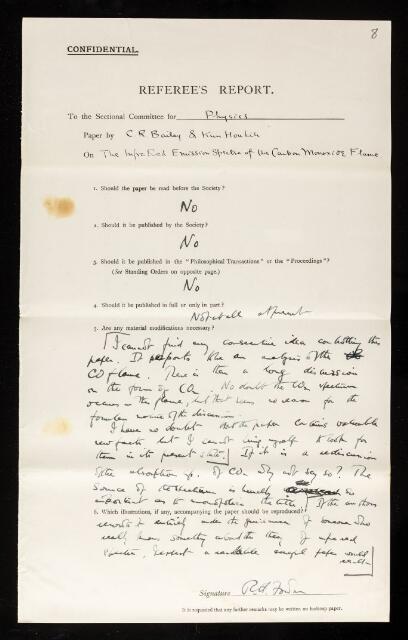 8
CONFIDENTIAL.
REFEREE'S REPORT.
To the Sectional Committee for Physics
Paper by C R Bailey &
On The Infra Red Emission Spectra of the Carbon Monoxide Flame
1. Should the paper be read before the Society?
No
2. Should it be published by the Society?
No
3. Should it be published in the "Philosophical Transactions" or the "Proceedings"?
(See Standing Orders on opposite page.)
No
4. Should it be published in full or only in part?
Not at all at present
5. Are any material modifications necessary?
I cannot find any consecutive idea controlling this
paper. It reports like an analysis of the
CO flame. There is then a long discussion
on the form of CO2. No doubt the CO2 spectrum
occurs in the flame, but that is no reason for the
nature of the discussion.
I have no doubt that the paper contains valuable
new facts but I cannot bring myself to look for
them in its present state. If it is a rediscussion
of the absorption sp. of CO2 why not say so? The
source of the is hardly so
important as to the title. If the authors
rewrote it entirely under the guidance of someone who
really knows something about the theory of infrared
spectra, I expect a readable paper would
result.
6. Which illustrations, if any, accompanying the paper should be reproduced?
Signature R.H. Fowler
It is requested that any further remarks may be written on backmost paper.